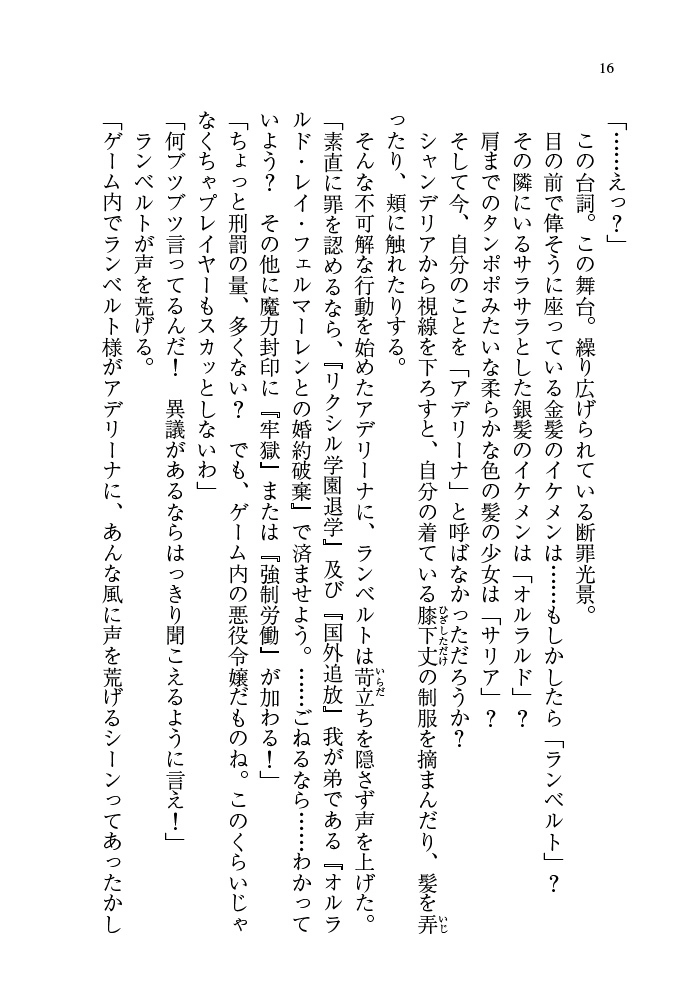 16
「……えっ？」
この台詞。この舞台。繰り広げられている断罪光景。
目の前で偉そうに座っている金髪のイケメンは……もしかしたら「ランベルト」？
その隣にいるサラサラとした銀髪のイケメンは「オルラルド」？
肩までのタンポポみたいな柔らかな色の髪の少女は「サリア」？
そして今、自分のことを「アデリーナ」と呼ばなかっただろうか？
シャンデリアから視線を下ろすと、自分の着ている膝下丈の制服を摘まんだり、髪を弄
ったり、頬に触れたりする。
そんな不可解な行動を始めたアデリーナに、ランベルトは苛立ちを隠さず声を上げた。
「素直に罪を認めるなら、『リクシル学園退学』及び『国外追放』我が弟である『オルラ
ルド・レイ・フェルマーレンとの婚約破棄』で済ませよう。……ごねるなら……わかって
いよう？　その他に魔力封印に『牢獄』または『強制労働』が加わる！」
「ちょっと刑罰の量、多くない？　でも、ゲーム内の悪役令嬢だものね。このくらいじゃ
なくちゃプレイヤーもスカッとしないわ」
「何ブツブツ言ってるんだ！　異議があるならはっきり聞こえるように言え！」
ランベルトが声を荒げる。
「ゲーム内でランベルト様がアデリーナに、あんな風に声を荒げるシーンってあったかし